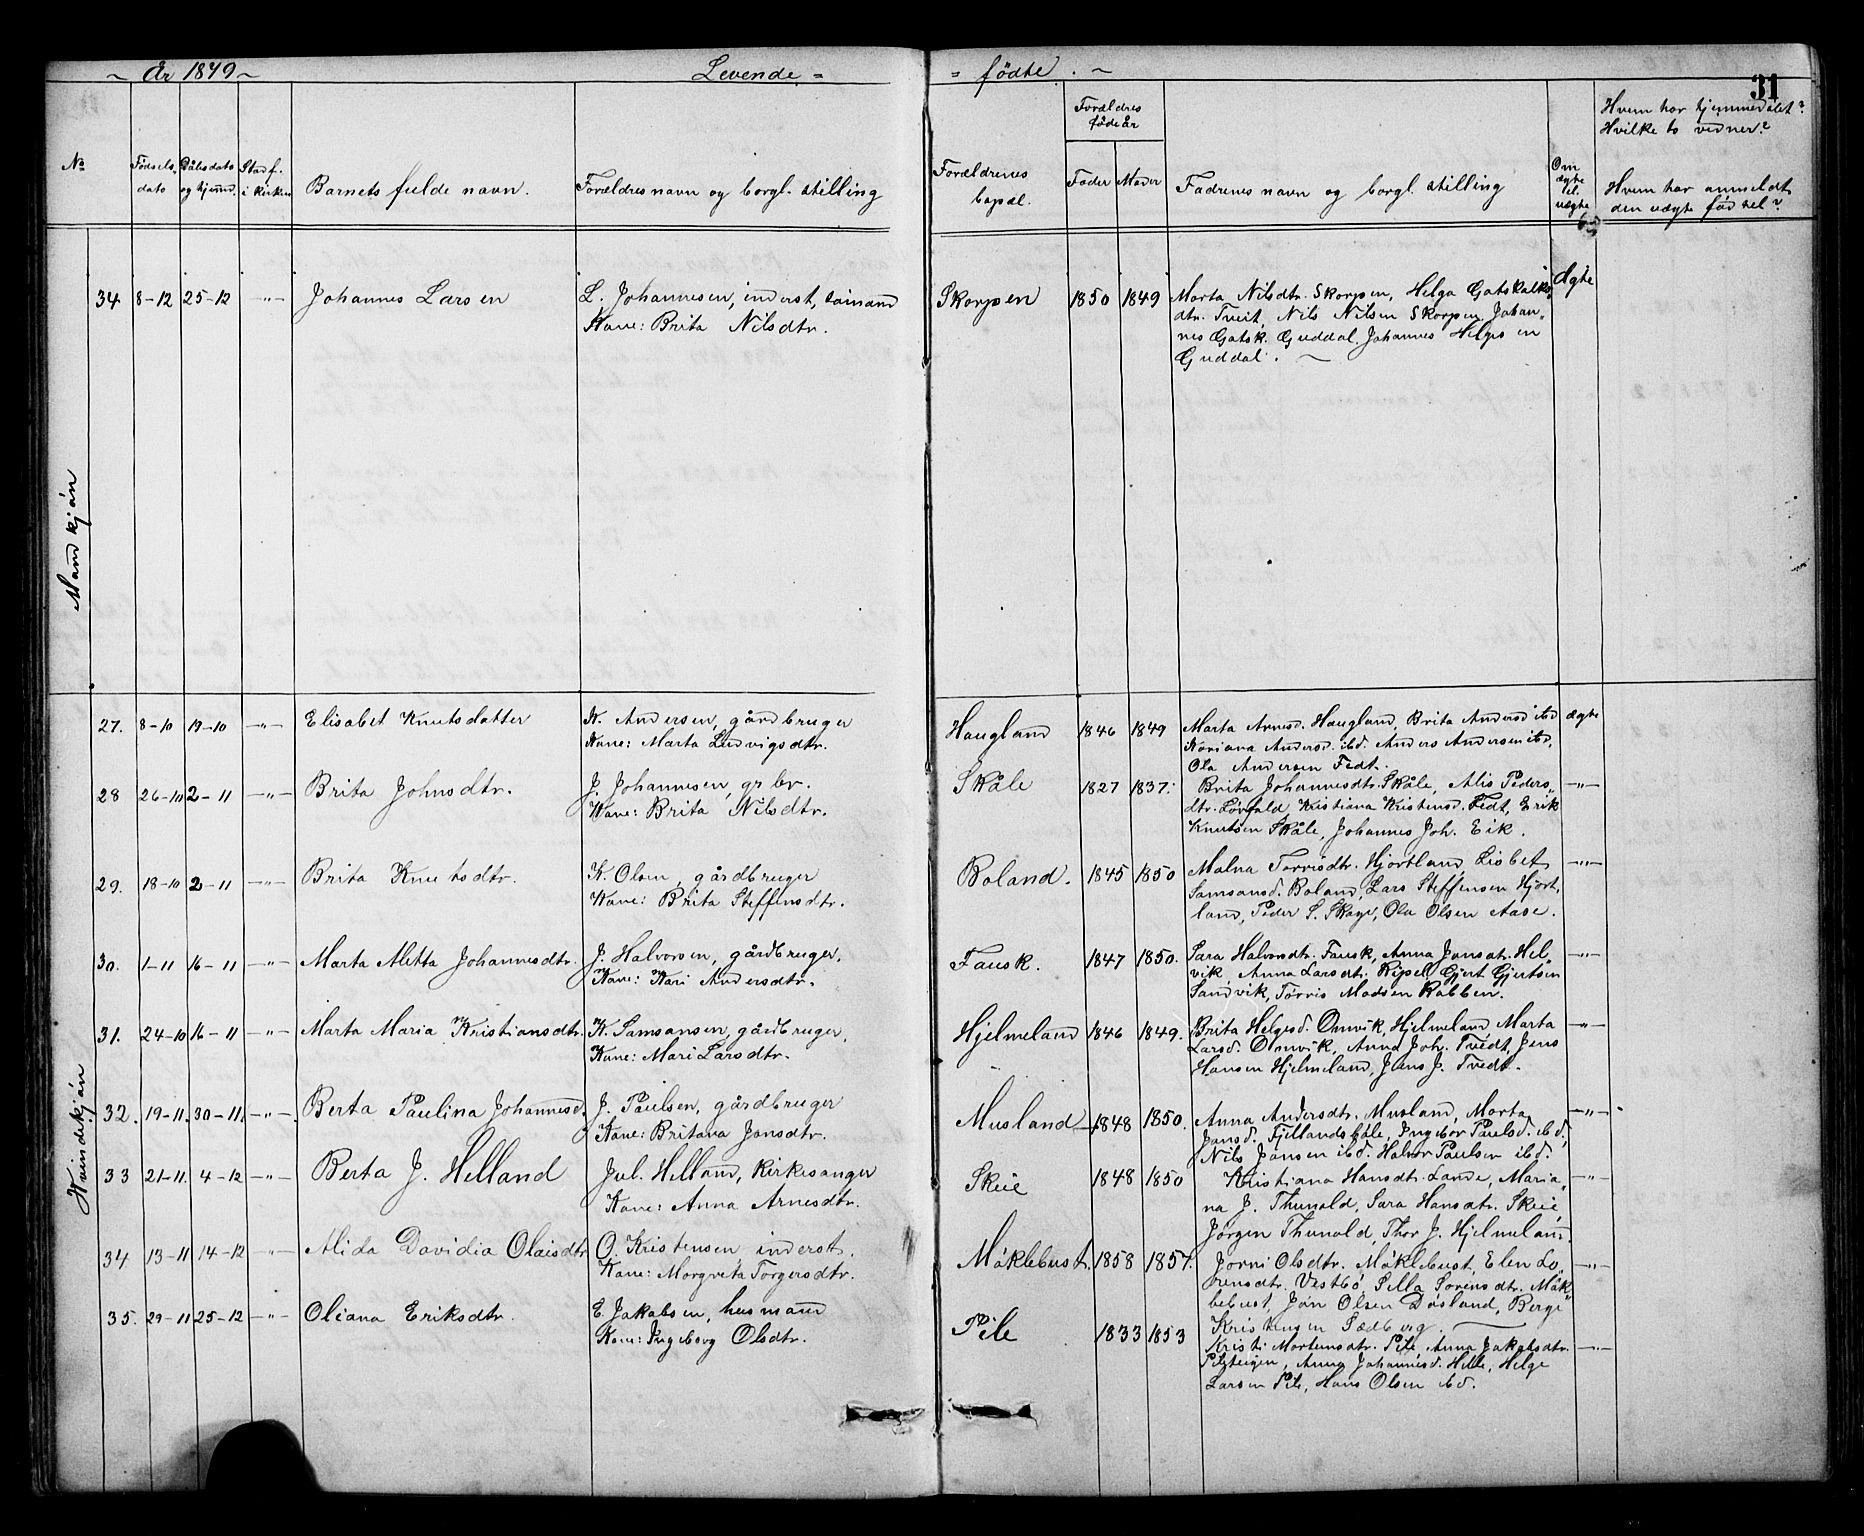 ~ År 1879 ~ Levende = = fødte . ~
31
No
Fødsels-
dato
Dåbsdato
og hjemd.
Stadf.
i kirken
Barnets fulde navn.
Forældres navn og borgl. stilling
Forældrenes
bopæl.
Forældres
fødeår
Fader Moder
Fadrenes navn og borgl. stilling
Om
ægte
el.
uægte
Hvem har hjemmedøbt?
Hvilke to vidner?
Hvem har anmeldt
den uægte fødsel?
Mandkjøn
34 8-12 25-12 -"- Johannes Larsen L. Johannesen, inderst, Skorpen 1850 1849 Marta Nilsdtr. Skorpen, Helga Gotskalks- Ægte
Kone: Brita Nilsdtr. dtr. Tveit, Nils Nilsen Skorpen, Johan-
nes Gotsk. Guddal, Johannes Helges en
Guddal.
Kvindekjøn
27. 8-10 19-10 -"- Elisabet Knutsdatter K. Andersen, gårdbruger Haugland 1846 1849 Marta Arnesd. Haugland, Brita Andersd ibd ægte
Kone: Marta Ludvigsdtr. Andersd. ibd. Anders Andersen ibd,
Ola Andersen Fedt.
28 26-10 2-11 -"- Brita Johnsdtr. J. Johannesen, gr br. Skåle 1827 1837. Brita Johannesdtr. Skåle, Alis Peders- -"-
Kone: Brita Nilsdtr. dtr. Kristiana Kristensd. Fedt, Erik
Knutsen Skåle, Johannes Joh. Eik.
29. 18-10 2-11 -"- Brita Knutsdtr. K. Olsen, gårdbruger Boland. 1845 1850 Malna Torrisdtr. Hjortland, Lisbet -"-
Kone: Brita Steffensdtr. Samsonsd. Boland, Lars Steffensen Hjort-
land, Peder S. Skage, Ola Olsen Aase.
30. 1-11 16-11 -"- Marta Aletta Johannesdtr. J. Halvorsen, gårdbruger, Fausk. 1847 1850. Sara Halvordtr. Fausk, Anna Jonsdtr. Hel- -"-
Kone: Kari Andersdtr. vik, Anna Larsdtr. Ripel, Gjert Gjertsen
Sandvik, Tørris Madsen Rabben.
31. 24-10 16-11 -"- Marta Maria Kristiansdtr. K. Samsansen, gårdbruger, Hjelmeland 1846 1849. Brita Helgesd. Omvik, Hjelmeland, Marta -"-
Kone: Mari Larsdtr. Larsd. Omvik, Anna Joh. Tvedt, Jens
Hansen Hjelmeland, Jens J. Tvedt.
32. 19-11. 30-11. -"- Berta Paulina Johannesd. J. Paulsen, gårdbruger Musland 1848 1850. Anna Andersdtr. Musland, Marta -"-
Kone: Britana Jonsdtr. Jonsd. Fjellandsbøle, Ingebor Paulsd. ibd,
Nils Jonsen ibd. Halvor Paulsen ibd.
33 21-11. 4-12 -"- Berta J. Helland Jul. Helland, kirkesanger Skeie 1848 1850 Kristiana Hansdtr. Lande, Maria- -"-
Kone: Anna Arnesdtr. na J. Thunold, Sara Hansdtr. Skeie,
Jørgen Thunold, Thor J. Hjelmeland.
34 13-11 14-12 -"- Alida Davidia Olaisdtr O. Kristensen inderst. Møklebust. 1858 1857. Jorni Olsdtr. Møklebust, Elen Lo- -"-
Kone: Margreta Torgersdtr. rensdtr. Vestbø, Silla Sørensdtr. Møk-
lebust, Jon Olsen Døsland, Berge
Kristensen Sædberg.
35. 29-11 25-12 -"- Oliana Eriksdtr. E Jakobsen, husmand Pile 1833 1853 Kristi Mortensdtr. Pile, Anna Jakobsdtr. -"-
Kone: Ingeborg Olsdtr. Pilsteigen, Anna Johannesd. Helle, Helge
Larsen Pile, Hans Olsen ibd.